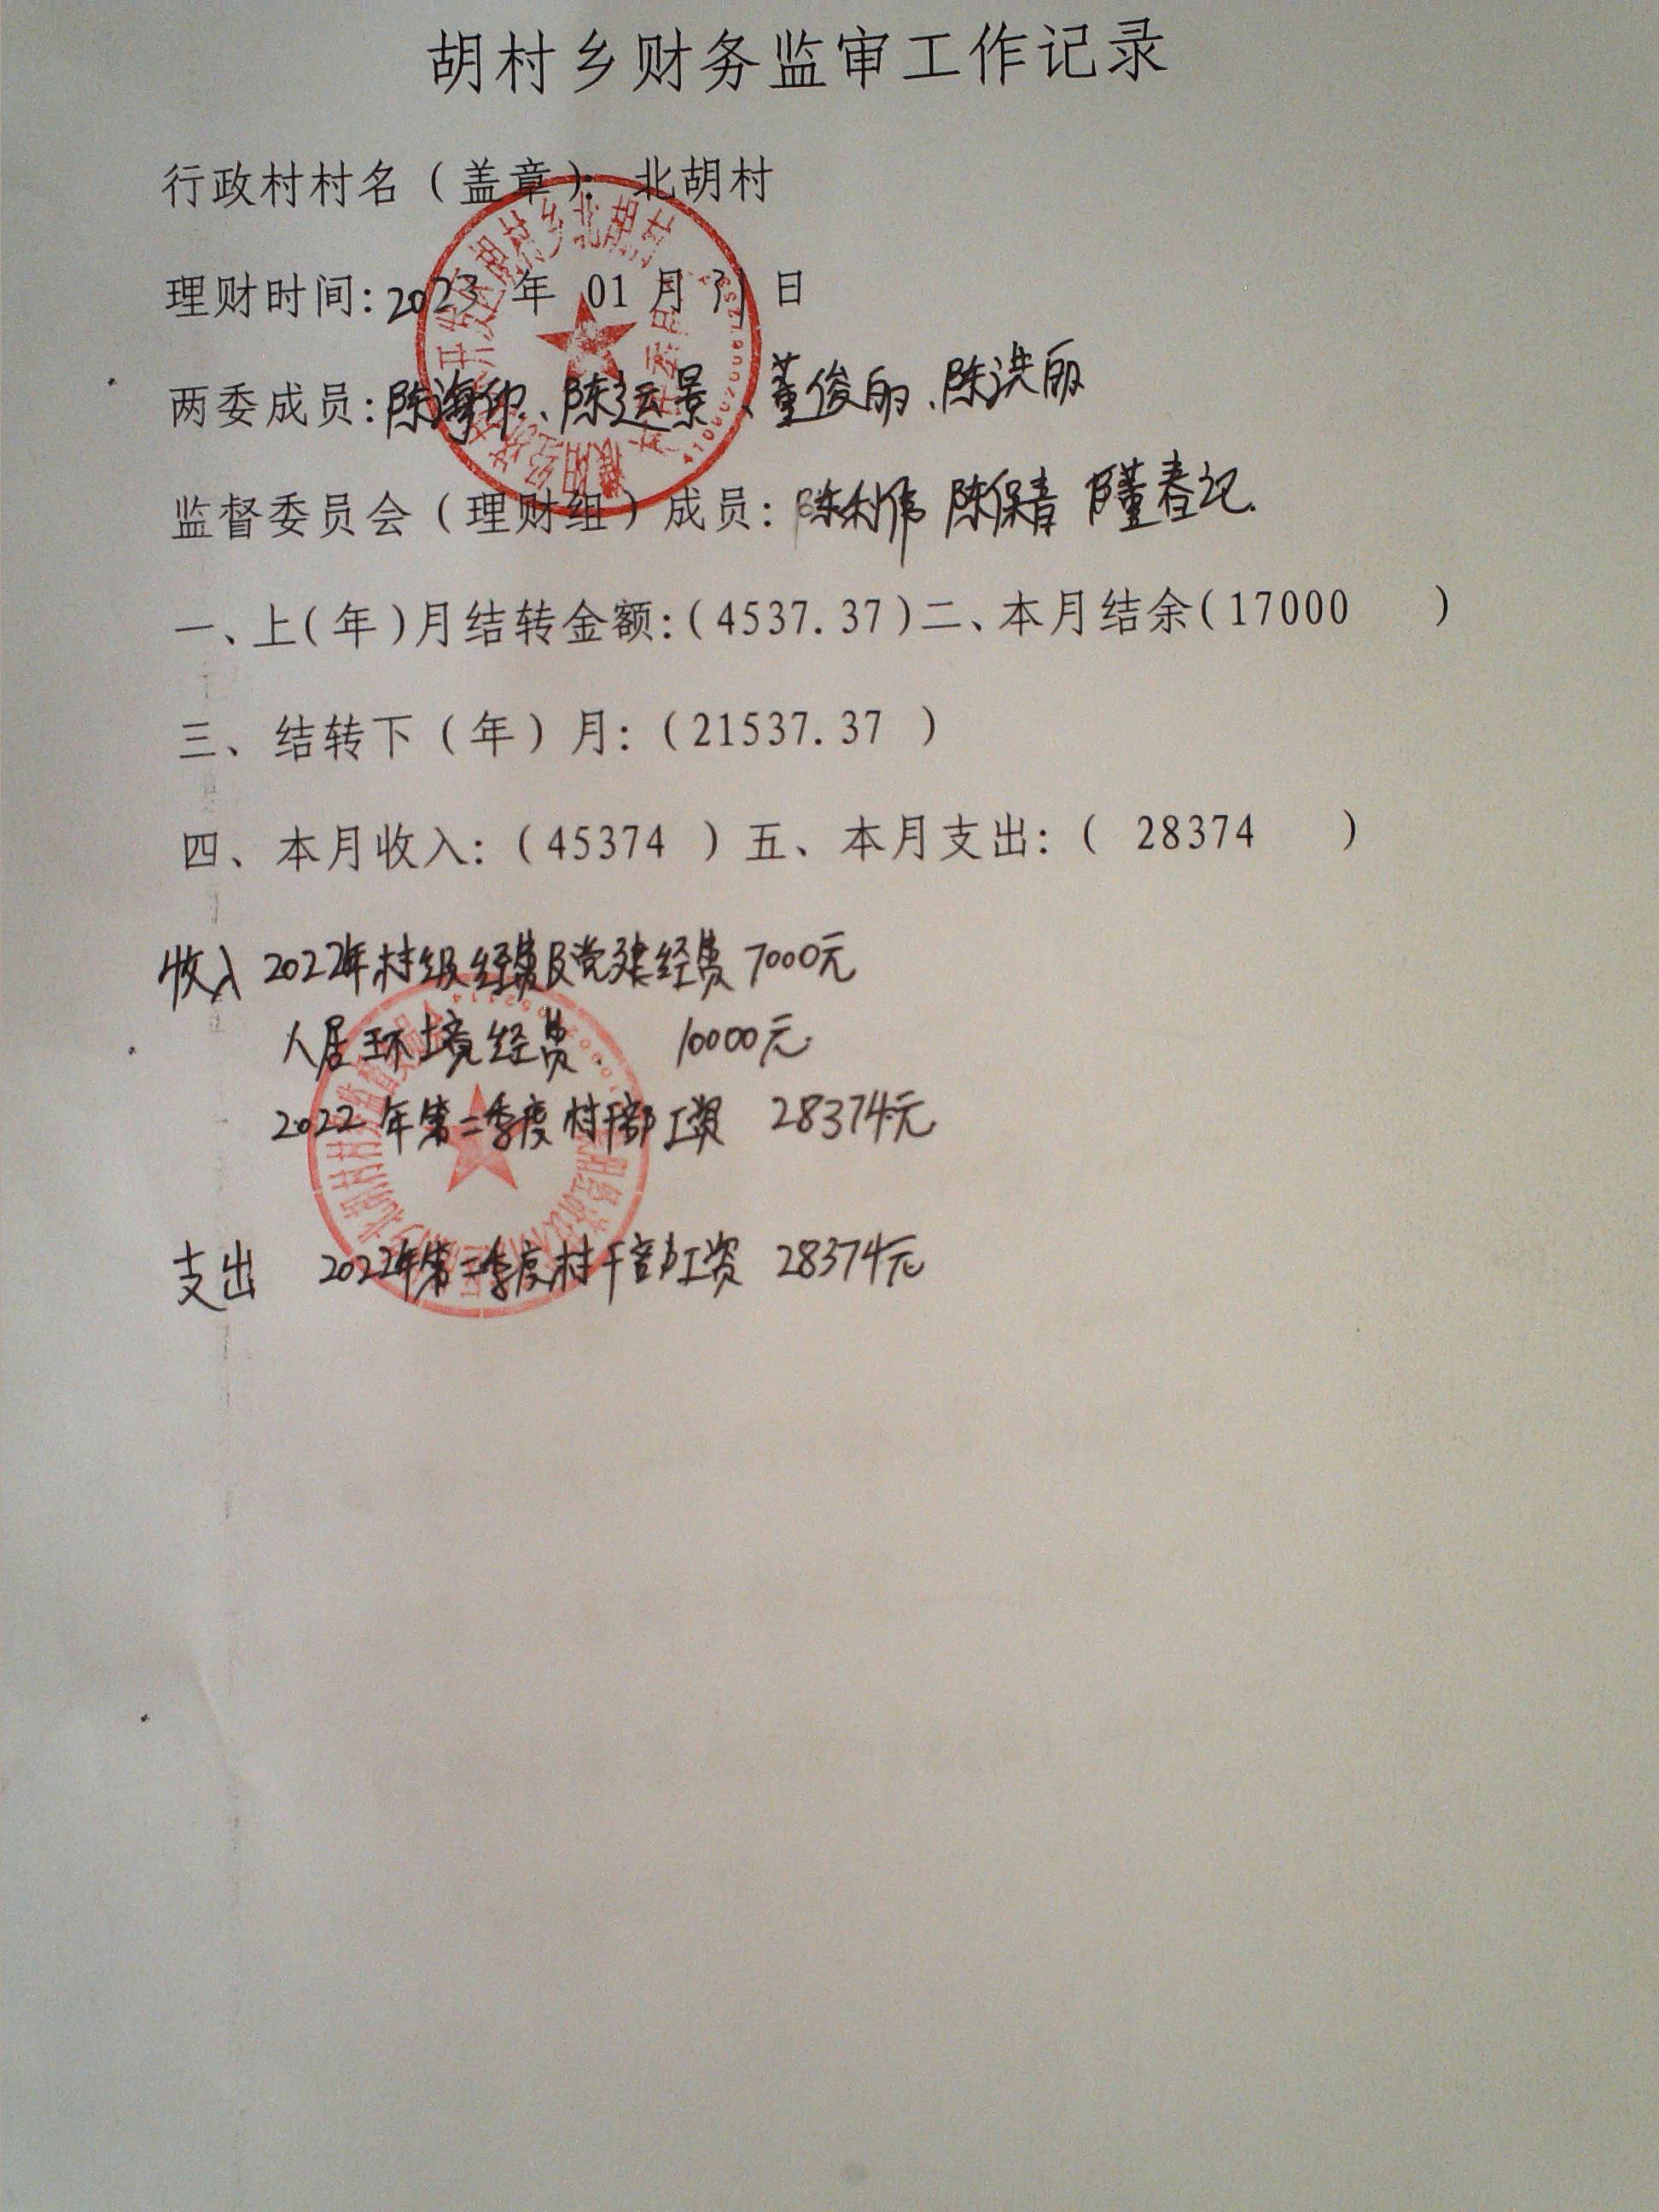 胡村乡财务监审工作记录
行政村村名（盖章）：北胡村
理财时间：2023 年 01 月 31 日
两委成员：陈海印、陈运景、董俊丽、陈洪丽
监督委员会（理财组）成员：陈利伟 陈保青 董春记
一、上(年)月结转金额：(4537.37)二、本月结余(17000 )
三、结转下（年）月：（21537.37 ）
四、本月收入：（45374 ）五、本月支出：（ 28374 ）
收入 2022年村级经费及党建经费 7000元
人居环境经费 10000元
2022年第三季度村干部工资 28374元
支出 2022年第三季度村干部工资 28374元